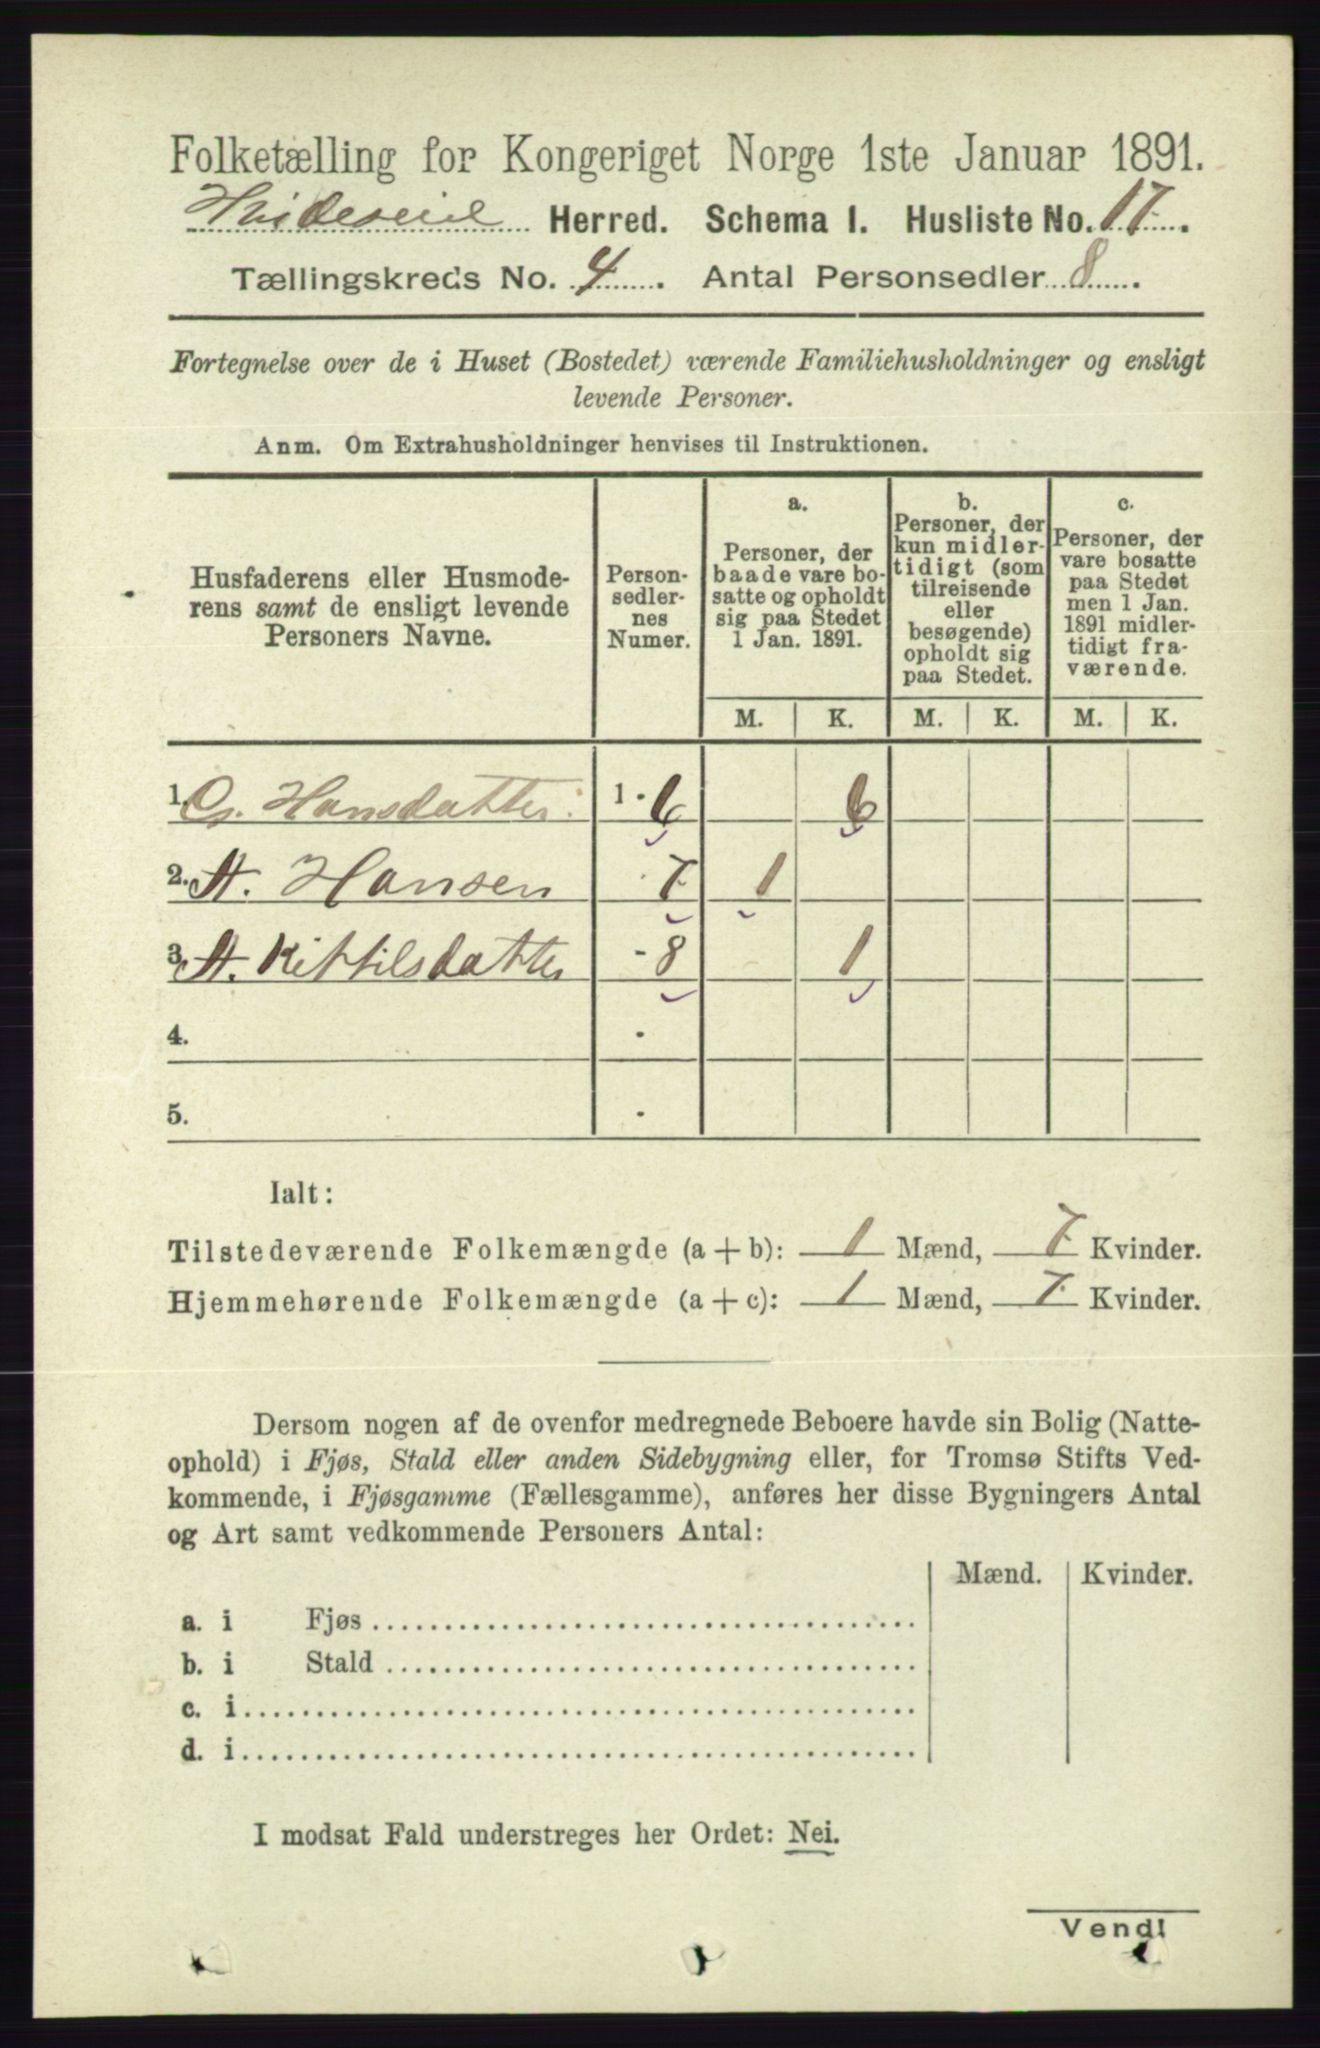 Folketælling for Kongeriget Norge 1ste Januar 1891.
Hvideseid Herred. Schema I. Husliste No. 17.
Tællingskreds No. 4. Antal Personsedler 8.
Fortegnelse over de i Huset (Bostedet) værende Familiehusholdninger og ensligt
levende Personer.
Anm. Om Extrahusholdninger henvises til Instruktionen.
Husfaderens eller Husmode-
rens samt de ensligt levende
Personers Navne.
Person-
sedler-
nes
Numer.
a.
Personer, der
baade vare bo-
satte og opholdt
sig paa Stedet
1 Jan. 1891.
b.
Personer, der
kun midler-
tidigt (som
tilreisende
eller
besøgende)
opholdt sig
paa Stedet.
c.
Personer, der
vare bosatte
paa Stedet
men 1 Jan.
1891 midler-
tidigt fra-
værende.
M. K. M. K. M. K.
1. G. Hansdatter 1 - 6 6
2. A. Hansen - 7 1
3. A. Kittilsdatter - 8 1
4. -
5. -
Ialt:
Tilstedeværende Folkemængde (a + b): 1 Mænd, 7 Kvinder.
Hjemmehørende Folkemængde (a + c): 1 Mænd, 7 Kvinder.
Dersom nogen af de ovenfor medregnede Beboere havde sin Bolig (Natte-
ophold) i Fjøs, Stald eller anden Sidebygning eller, for Tromsø Stifts Ved-
kommende, i Fjøsgamme (Fællesgamme), anføres her disse Bygningers Antal
og Art samt vedkommende Personers Antal:
Mænd. Kvinder.
a. i Fjøs
b. i Stald
c. i
d. i
I modsat Fald understreges her Ordet: Nei.
Vend!